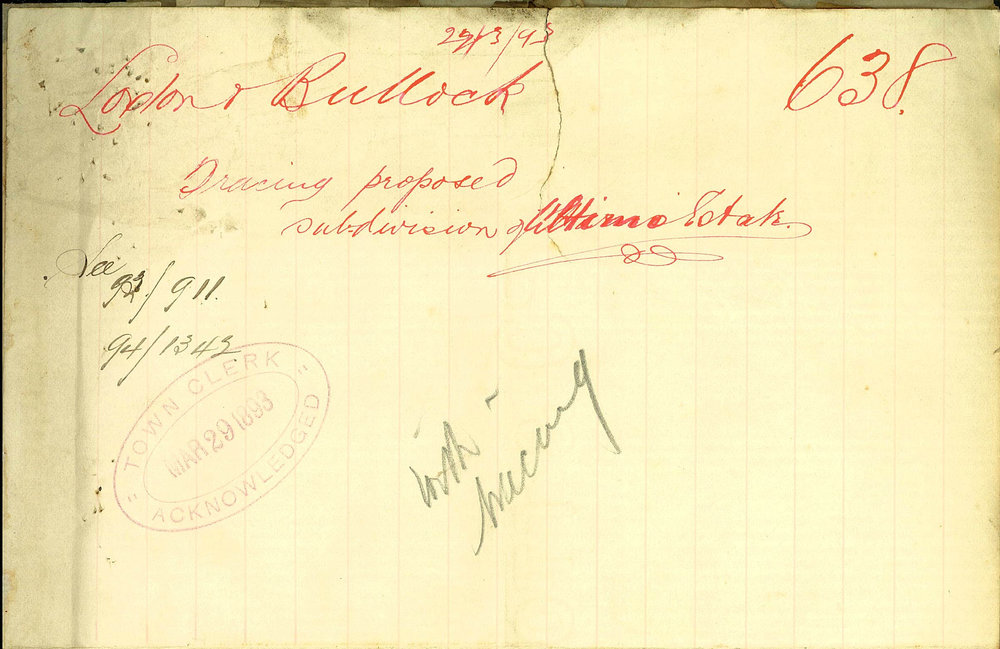 29/3/93
Lordon & Bullock
638.
Tracing proposed
subdivision of Ultimo Estate.
See
93/911.
94/1343
"TOWN CLERK"
MAR 29 1893
ACKNOWLEDGED
with
tracing